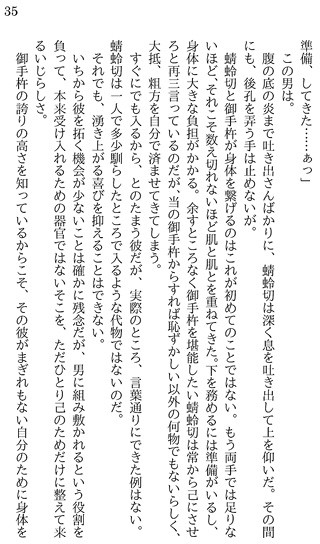 35
準備、してきた……ぁっ」
この男は。
腹の底の炎まで吐き出さんばかりに、蜻蛉切は深く息を吐き出して上を仰いだ。その間
にも、後孔を弄う手は止めないが。
蜻蛉切と御手杵が身体を繋げるのはこれが初めてのことではない。もう両手では足りな
いほど、それこそ数え切れないほど肌と肌とを重ねてきた。下を務めるには準備がいるし、
身体に大きな負担がかかる。余すところなく御手杵を堪能したい蜻蛉切は常から己にさせ
ろと再三言っているのだが、当の御手杵からすれば恥ずかしい以外の何物でもないらしく、
大抵、粗方を自分で済ませてきてしまう。
すぐにでも入るから、とのたまう彼だが、実際のところ、言葉通りにできた例はない。
蜻蛉切は一人で多少馴らしたところで入るような代物ではないのだ。
それでも、湧き上がる喜びを抑えることはできない。
いちから彼を拓く機会が少ないことは確かに残念だが、男に組み敷かれるという役割を
負って、本来受け入れるための器官ではないそこを、ただひとり己のためだけに整えて来
るいじらしさ。
御手杵の誇りの高さを知っているからこそ、その彼がまぎれもない自分のために身体を